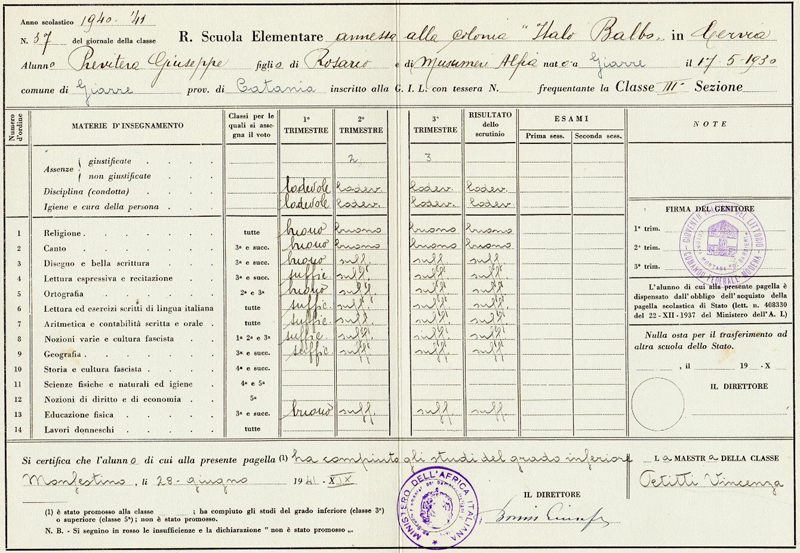 Anno scolastico 1940-'41
N. 37 del giornale della classe
R. Scuola Elementare annessa alla colonia "Italo Balbo" in Cervia
Alunno Previtera Giuseppe figlio di Rosario e di Musumeci Alfia nato a Giarre il 17-5-1930
comune di Giarre prov. di Catania inscritto alla G. I. L. con tessera N. frequentante la Classe IIIª Sezione
Numero d'ordine MATERIE D'INSEGNAMENTO Classi per le quali si assegna il voto 1º TRIMESTRE 2º TRIMESTRE 3º TRIMESTRE RISULTATO dello scrutinio ESAMI Prima sess. Seconda sess. NOTE
Assenze { giustificate 2 3
non giustificate
Disciplina (condotta) lodevole lodev. lodev. lodev.
Igiene e cura della persona lodevole lodev. lodev. lodev.
1 Religione tutte buono buono buono buono
2 Canto 3ª e succ. buono buono buono buono
3 Disegno e bella scrittura 3ª e succ. buono suff. suff. suff.
4 Lettura espressiva e recitazione 3ª e succ. suffic. suff. suff. suff.
5 Ortografia 2ª e 3ª buono suff. suff. suff.
6 Lettura ed esercizi scritti di lingua italiana tutte suffic. suff. suff. suff.
7 Aritmetica e contabilità scritta e orale tutte suffic. suff. suff. suff.
8 Nozioni varie e cultura fascista 1ª 2ª e 3ª suffic. suff. suff. suff.
9 Geografia 3ª e succ. suffic. suff. suff. suff.
10 Storia e cultura fascista 4ª e succ.
11 Scienze fisiche e naturali ed igiene 4ª e 5ª
12 Nozioni di diritto e di economia 5ª
13 Educazione fisica 3ª e succ. buono suff. suff. suff.
14 Lavori donneschi tutte
FIRMA DEL GENITORE
1º trim.
2º trim.
3º trim.
L'alunno di cui alla presente pagella è
dispensato dall'obbligo dell'acquisto della
pagella scolastica di Stato (lett. n. 408330
del 22-XII-1937 del Ministero dell'A. I.)
Nulla osta per il trasferimento ad
altra scuola dello Stato.
, il 19 -X
IL DIRETTORE
Si certifica che l'alunno di cui alla presente pagella (1) ha compiuto gli studi del grado inferiore
Monfestino, li 28 giugno 1941-XIX
La MAESTRA DELLA CLASSE
Petitti Vincenza
IL DIRETTORE
MINISTERO DELL'AFRICA ITALIANA
(1) è stato promosso alla classe ; ha compiuto gli studi del grado inferiore (classe 3ª)
o superiore (classe 5ª); non è stato promosso.
N. B. - Si segnino in rosso le insufficienze e la dichiarazione "non è stato promosso".